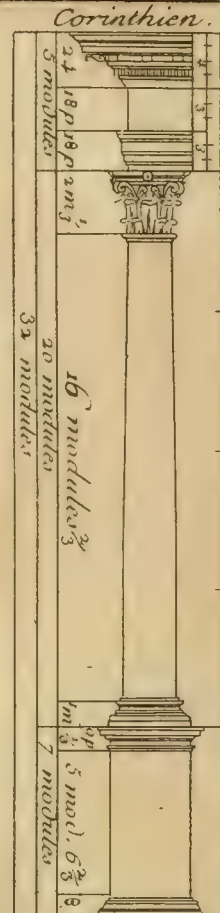 Corinthien.
24
18 p
18 p
5 modules
4
3
3
2 m 1/3
16 modules 2/3
20 modules
32 modules
1 m
9 p 1/3
5 mod. 6 2/3
7 modules
8